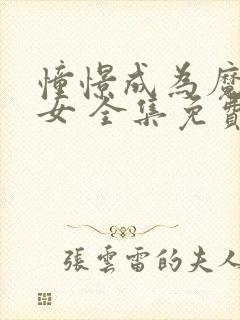 憧憬成為魔
女 全集免費
張雲雷的夫人